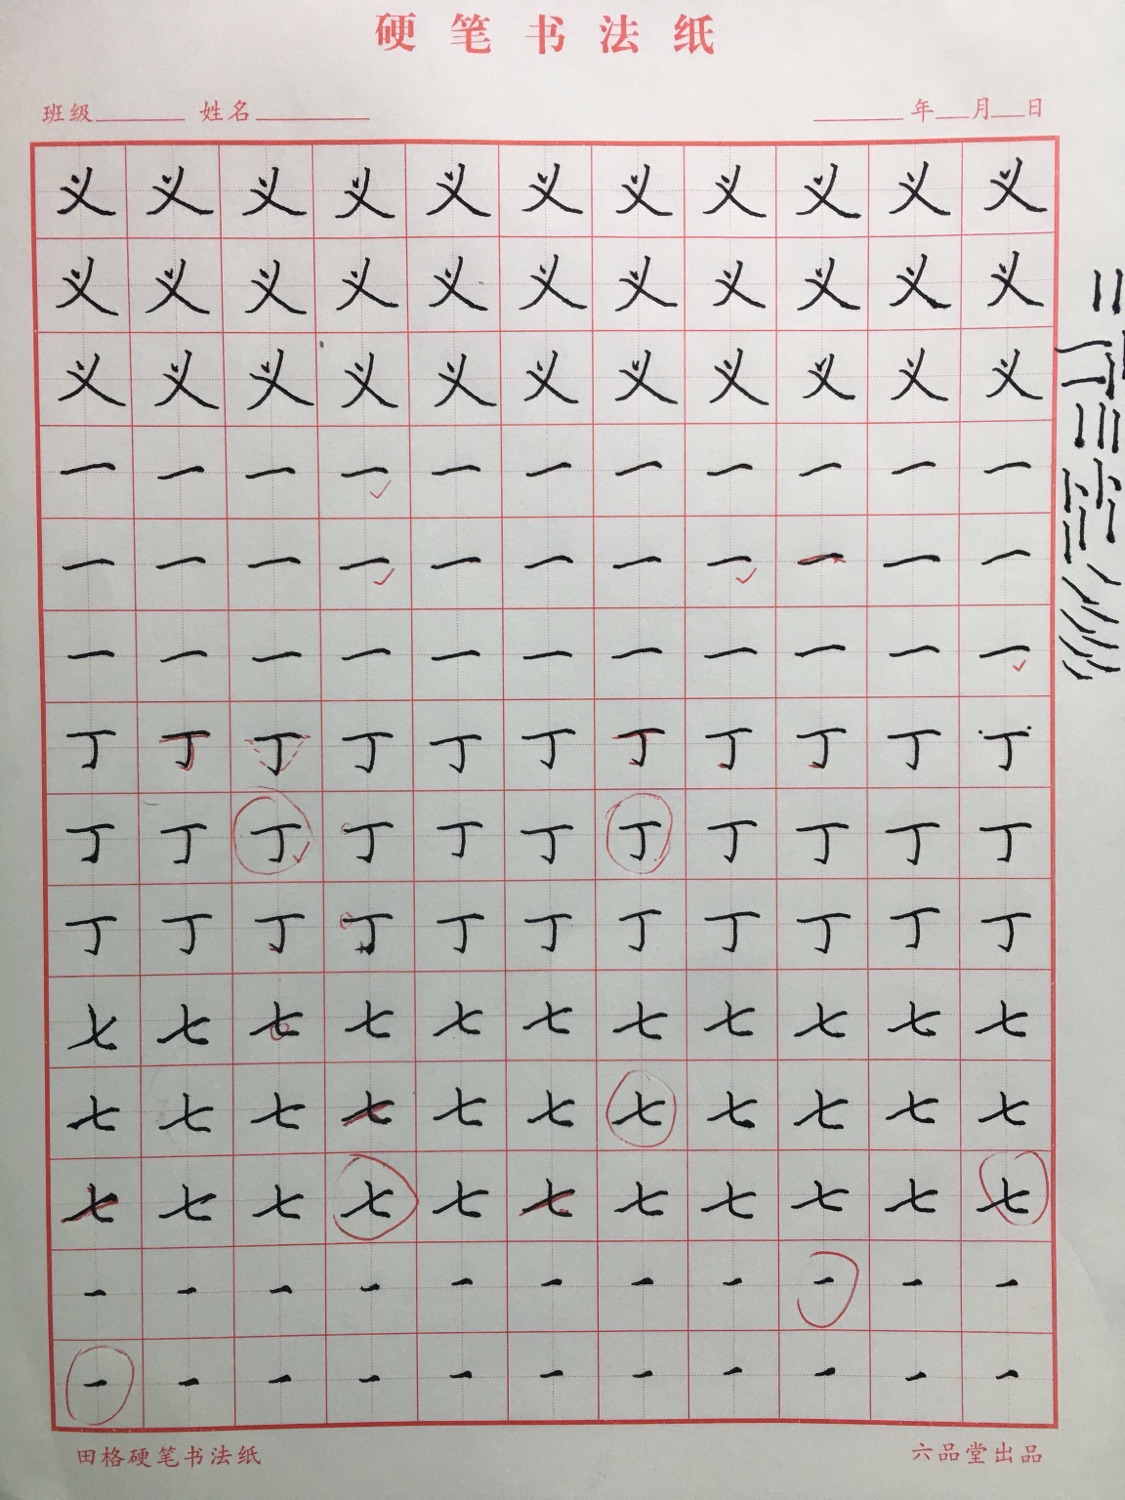 硬笔书法纸
班级 姓名 年 月 日
义义义义义义义义义义义
义义义义义义义义义义义
义义义义义义义义义义义
一一一一一一一一一一一
一一一一一一一一一一一
一一一一一一一一一一一
丁丁丁丁丁丁丁丁丁丁丁
丁丁丁丁丁丁丁丁丁丁丁
丁丁丁丁丁丁丁丁丁丁丁
七七七七七七七七七七七
七七七七七七七七七七七
七七七七七七七七七七七
一一一一一一一一一一一
一一一一一一一一一一一
田格硬笔书法纸 六品堂出品